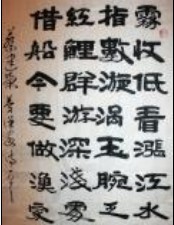 霧收低看漲江水
指數漩渦玉腕乏
紅鯉群游深淺霧
借船今要做漁叟